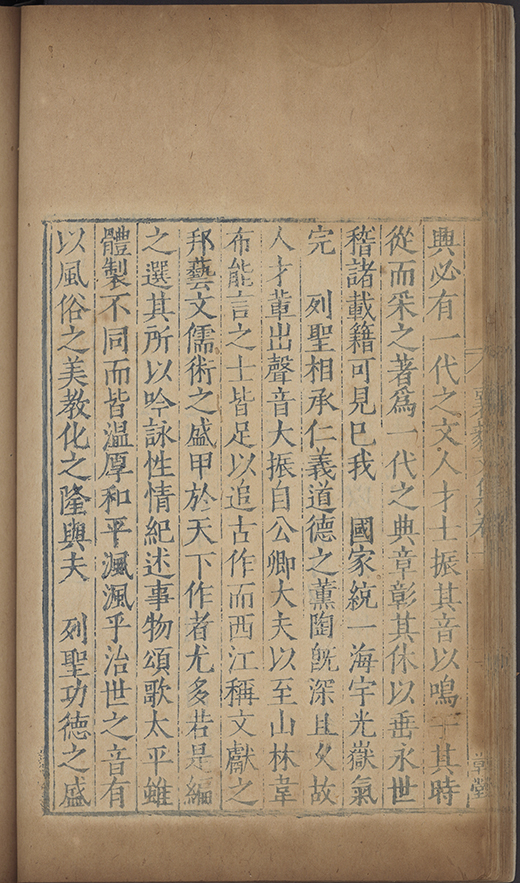 興必有一代之文人才士振其音以鳴于其時
從而采之著爲一代之典章彰其休以垂永世
稽諸載籍可見已我　國家統一海宇光嶽氣
完　列聖相承仁義道德之薰陶旣深且久故
人才輩出聲音大振自公卿大夫以至山林韋
布能言之士皆足以追古作而西江稱文獻之
邦藝文儒術之盛甲於天下作者尤多若是編
之選其所以吟詠性情紀述事物頌歌太平雖
體製不同而皆溫厚和平渢渢乎治世之音有
以風俗之美教化之隆與夫　列聖功德之盛